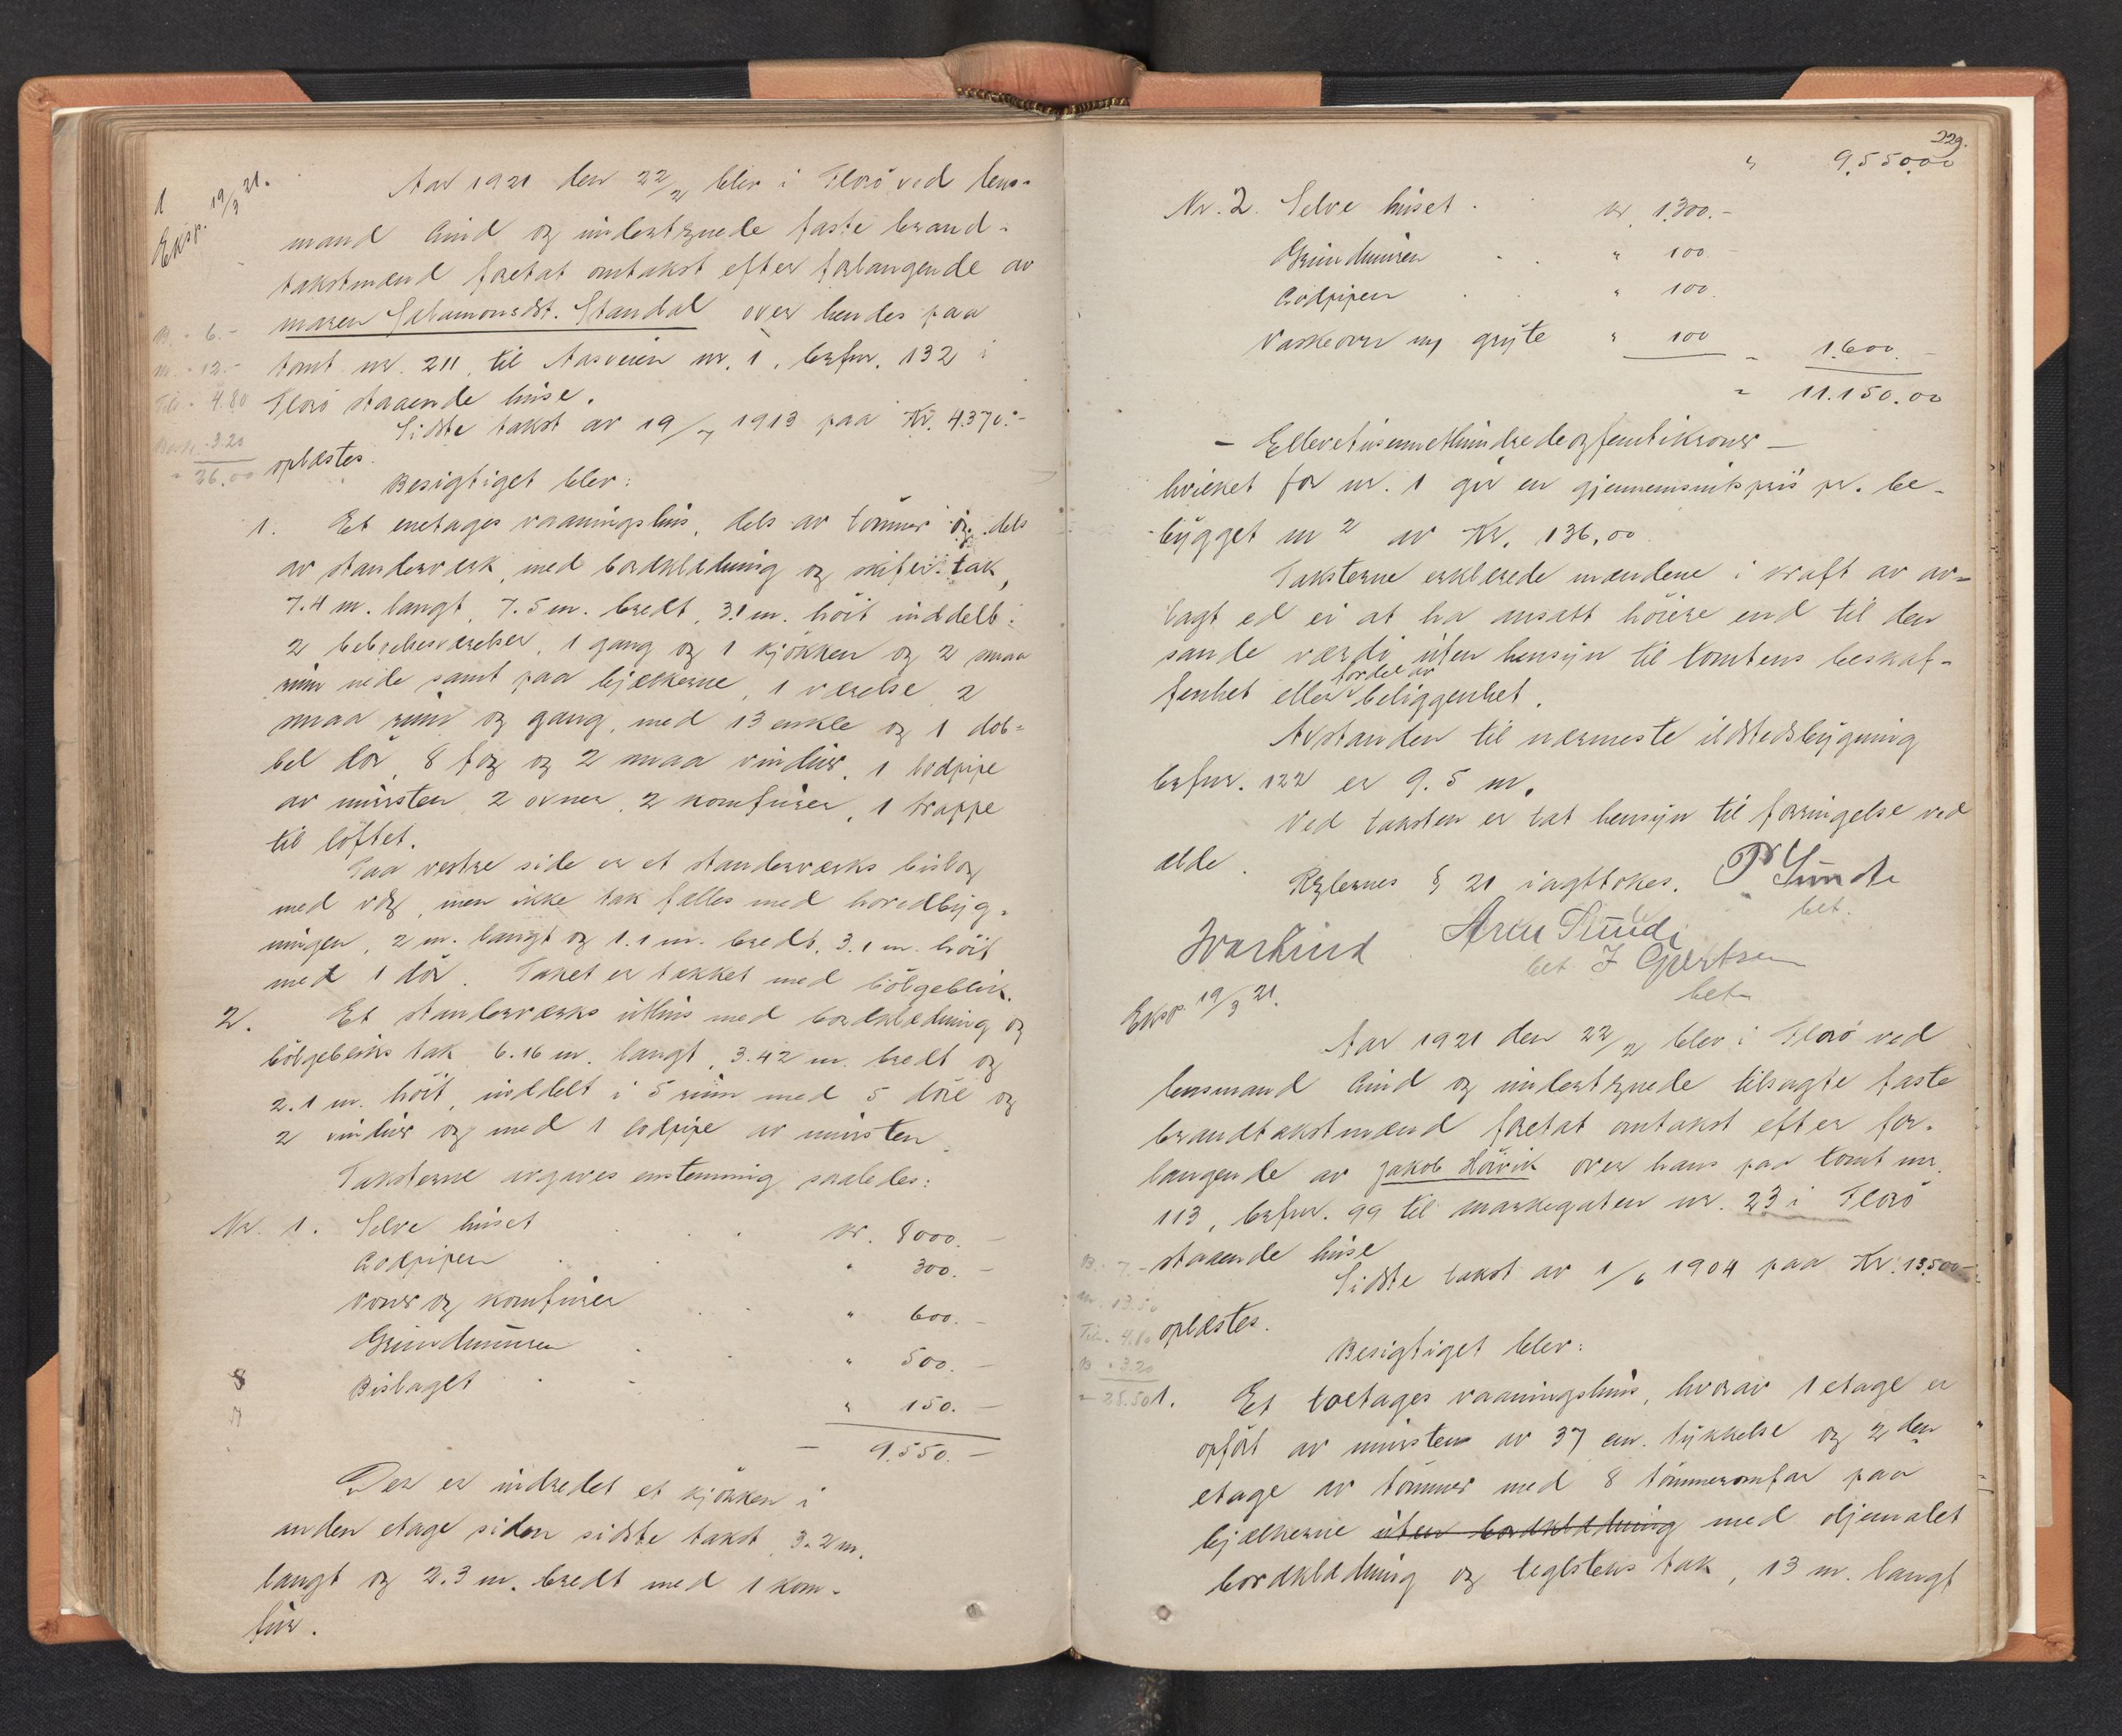 1
Eksp. 19/3 21.
Aar 1921 den 22/2 blev i Florö ved lens-
mand Lind og undertegnede faste brand-
takstmænd foretat omtakst efter forlangende av
Maren Salamonsdt. Standal over hendes paa
tomt nr. 211, til Aasveien nr. 1, brfnr. 132 i
Florö staaende huse.
Sidste takst av 19/7 1913 paa Kr. 4370.-
oplæstes.
B. - 6.-
M. - 12.-
Tils. - 4.80
Besk. - 3.20
- 26.00
Besigtiget blev:
1. Et enetages vaaningshus, dels av tömmer og dels
av standerverk, med bordklædning og skifertak,
7.4 m. langt, 7.5 m. bredt, 3.1 m. höit inddelt i
2 beboelsesværelser, 1 gang og 1 kjökken og 2 smaa
rum nede samt paa bjælkerne, 1 værelse 2
smaa rum og gang, med 13 enkle og 1 dob-
bel dör, 8 fag og 2 smaa vinduer, 1 brodpipe
av mursten 2 ovner, 2 komfurer, 1 trappe
til loftet.
Paa vestre side er et standerverks bislag
med væg, men ikke tak fælles med hovedbyg-
ningen, 2 m. langt og 1.1 m. bredt, 3.1 m. höit
med 1 dör. Taket er tækket med bölgeblik.
2. Et standerverks uthus med bordklædning og
bölgebliks tak 6.16 m. langt, 3.42 m. bredt og
2.1 m. höit, inddelt i 5 rum med 5 döre og
2 vinduer og med 1 brodpipe av mursten.
Taksterne avgaves enstemmig saaledes:
Nr. 1. Selve huset kr. 8000.-
Brodpipen " 300.-
Ovner og komfurer " 600.-
Grundmuren " 500.-
Bislaget " 150.-
- 9.550.-
Der er indredet et kjökken i
anden etage siden sidste takst, 3.2 m.
langt og 2.3 m. bredt med 1 kom-
fur.
229.
" 9.550.00
Nr. 2. Selve huset kr. 1.300.-
Grundmuren " 100
Brodpipen " 100.
Vaskeovn m/ gryte " 100 " 1.600.-
" 11.150.00
- Ellevetusenetthundredeogfemtikroner -
hvilket for nr. 1 gir en gjennemsnitspris pr. be-
bygget m2 av Kr. 136,00
Taksterne erklærede mændene i kraft av av-
lagt ed ei at ha ansatt höiere end til den
sande værdi uten hensyn til tomtens beskaf-
fenhet eller fordel av beliggenhet.
Avstanden til nærmeste ildstedsbygning
brfnr. 122 er 9.5 m.
Ved taksten er tat hensyn til forringelse ved
ælde.
Reglernes § 21 iagttokes. P Sunde
bet.
Ivar Lind Arne Sunde
bet J Gjertsen
bet
Eksp. 19/3 21.
Aar 1921 den 22/2 blev i Florö ved
lensmand Lind og undertegnede tilsagte faste
brandtakstmænd foretat omtakst efter for-
langende av Jakob Hövik over hans paa tomt nr.
113, brfnr. 99 til Markegaten nr. 23 i Florö
staaende huse
Sidste takst av 1/6 1904 paa Kr. 13.500-
oplæstes.
B. - 7.-
M. 13.50
Tils. 4.80
B. - 3.20
- 28.50
Besigtiget blev:
1. Et toetages vaaningshus, hvorav 1 etage er
opfört av mursten av 37 cm. tykkelse og 2den
etage av tömmer med 8 tömmeromfar paa
bjælkerne uten bordklædning med oljemalet
bordklædning og teglstens tak, 13 m. langt